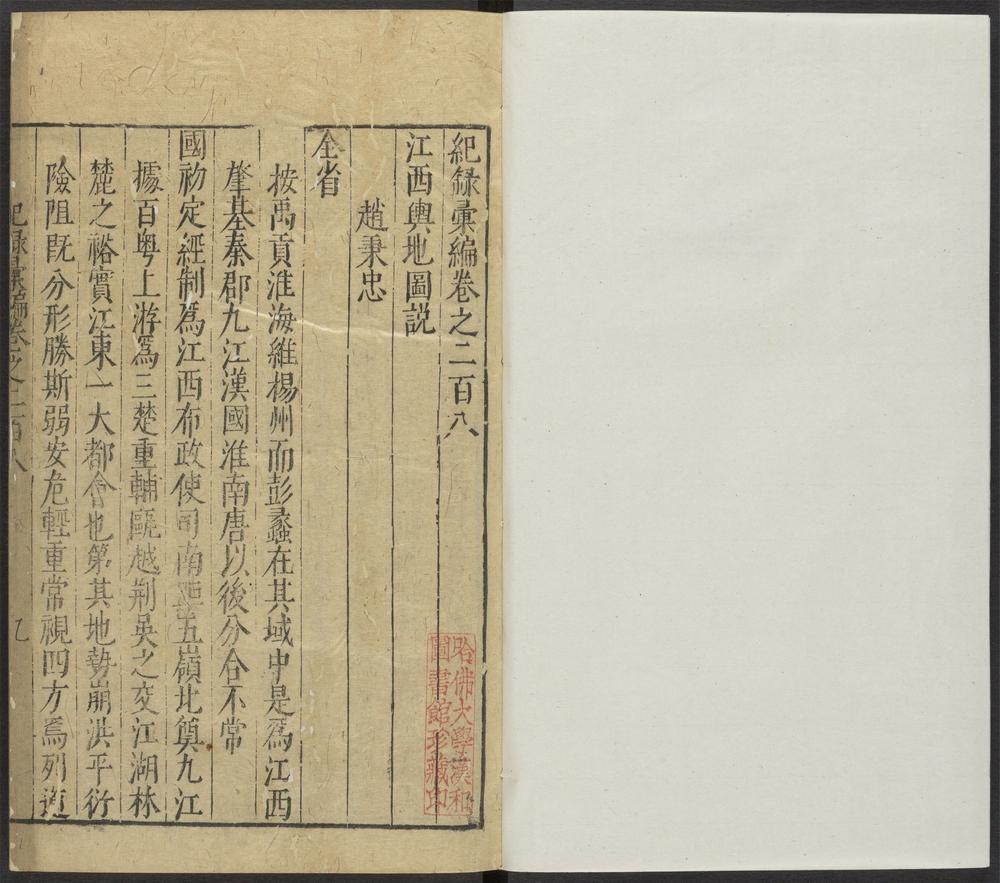 紀録彙編卷之二百八
江西輿地圖説
趙秉忠
全省
按禹貢淮海維楊州而彭蠡在其域中是爲江西
肇基秦郡九江漢國淮南唐以後分合不常
國初定經制爲江西布政使司南距五嶺北奠九江
據百粤上游爲三楚重輔甌越荆吳之交江湖林
麓之裕實江東一大都會也第其地勢崩洪平衍
險阻既分形勝斯弱安危輕重常視四方焉列
紀録彙編卷之二百八
哈佛大學漢和
圖書館珍藏印